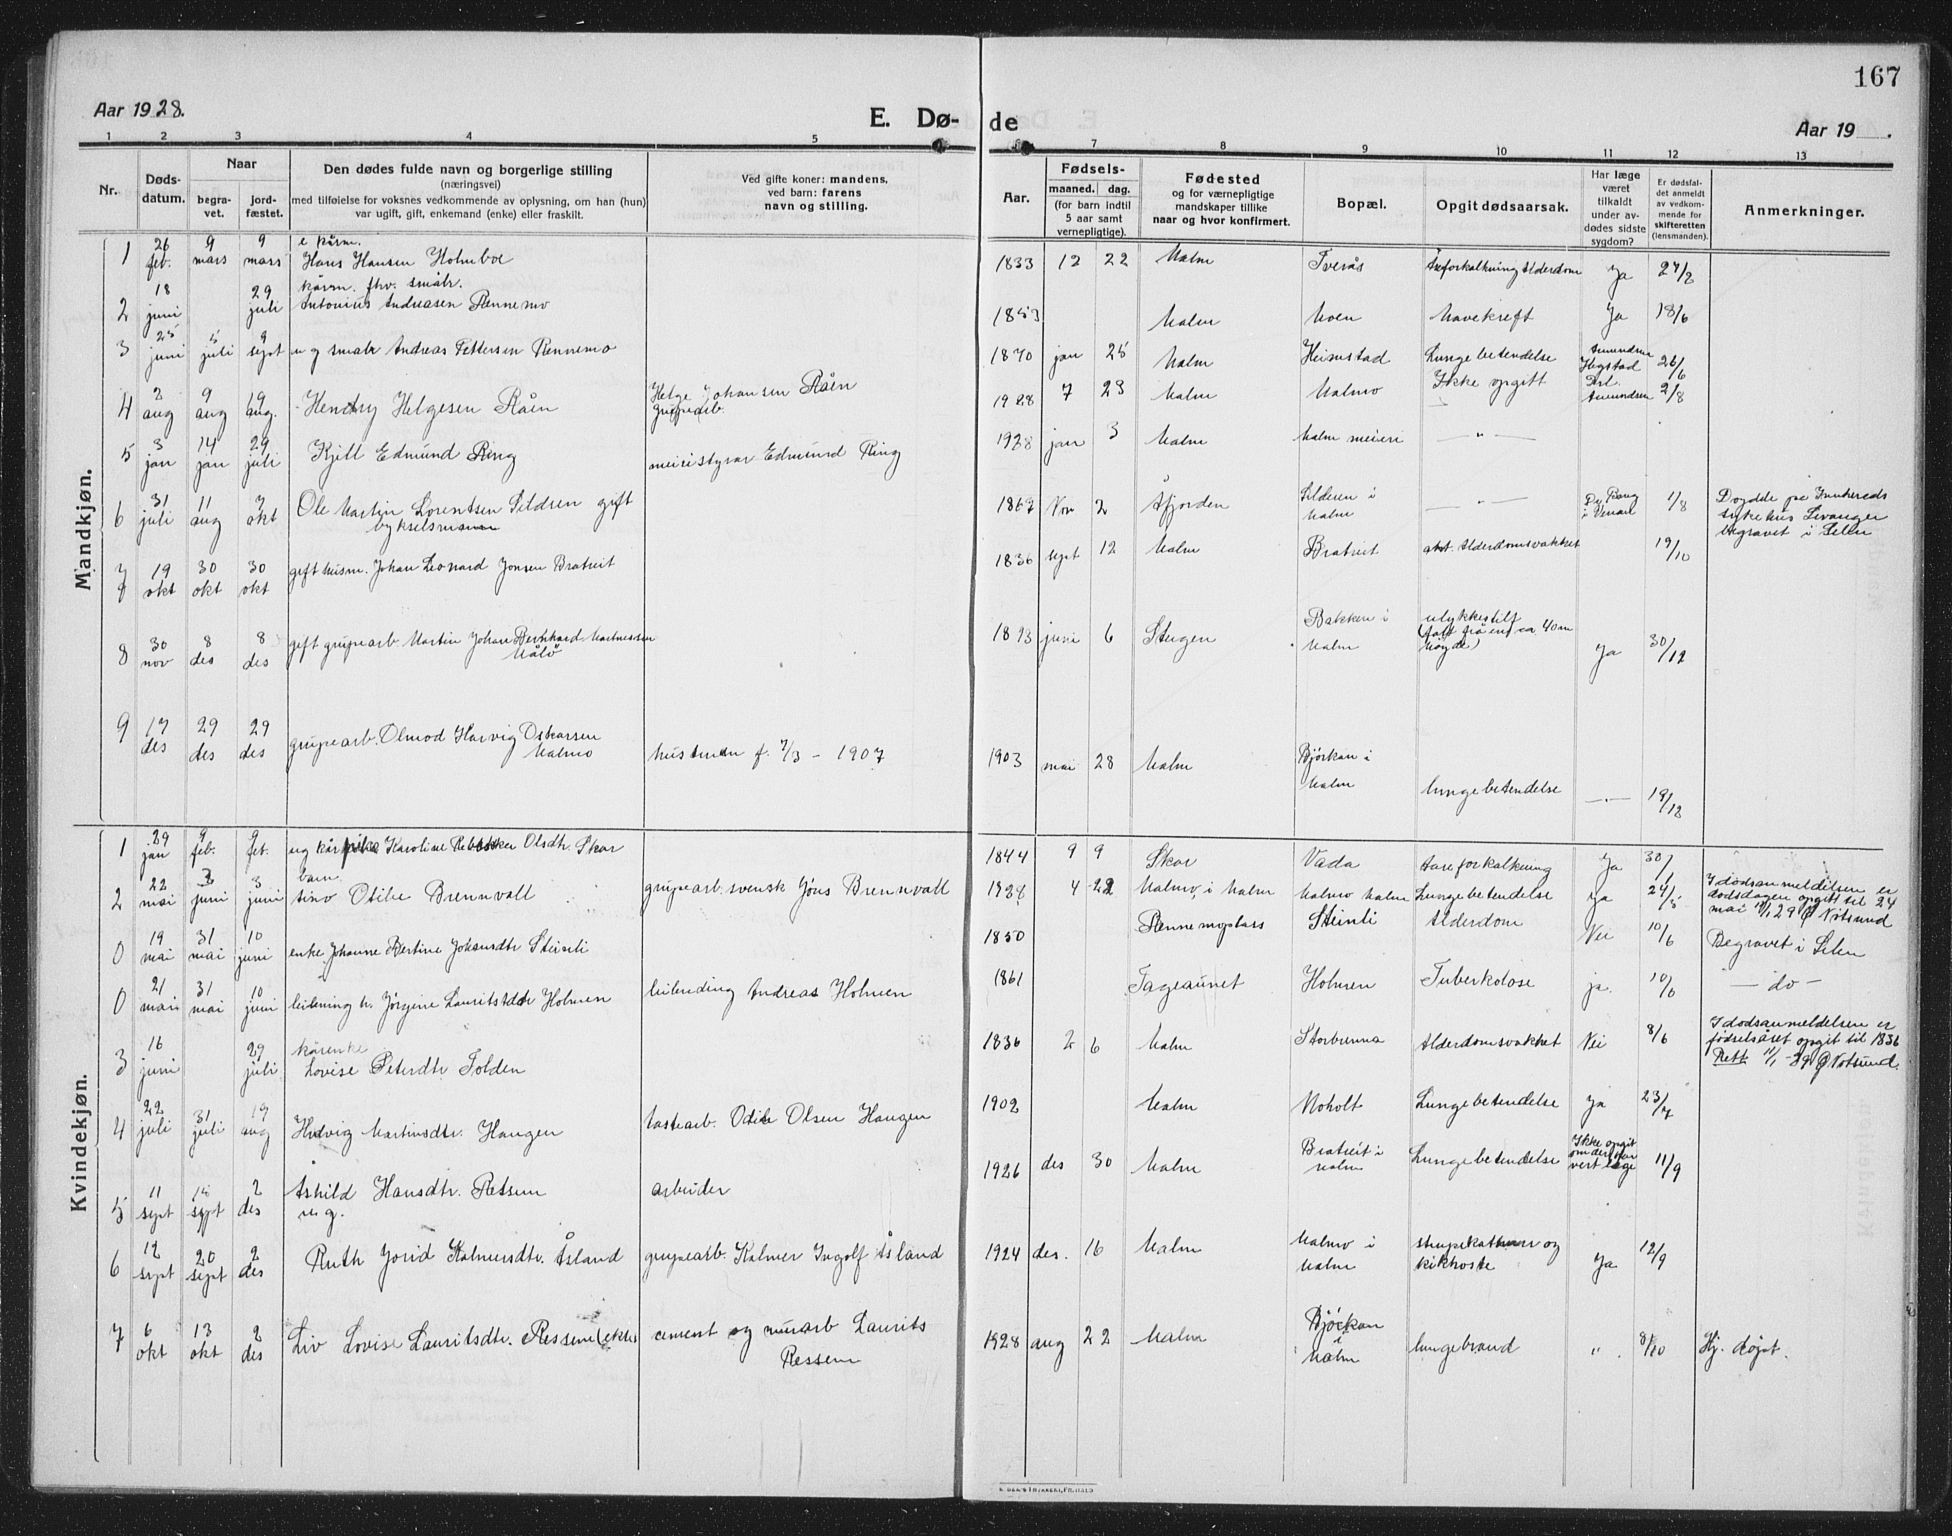 167
Aar 1928.
E. Dø-
de
Aar 19 .
1 2 3 4 5 7 8 9 10 11 12 13
Nr.
Døds-
datum.
Naar
begra-
vet.
jord-
fæstet.
Den dødes fulde navn og borgerlige stilling
(næringsvei)
med tilføielse for voksnes vedkommende av oplysning, om han (hun)
var ugift, gift, enkemand (enke) eller fraskilt.
Ved gifte koner: mandens,
ved barn: farens
navn og stilling.
Aar.
Fødsels-
maaned. dag.
(for barn indtil
5 aar samt
vernepligtige).
Fødested
og for værnepligtige
mandskaper tillike
naar og hvor konfirmert.
Bopæl.
Opgit dødsaarsak.
Har læge
været
tilkaldt
under av-
dødes sidste
sygdom?
Er dødsfal-
det anmeldt
av vedkom-
mende for
skifteretten
(lensmanden).
Anmerkninger.
Mandkjøn.
1 26 feb. 9 mars 9 mars e kårm.
Hans Hansen Holmboe 1833 12 22 Malm Tverås Åreforkalkning Alderdom Ja 27/2
2 18 juni 29 juli kårm. fhv. småbr.
Antonius Andreasen Rennemo 1853 Malm Moen Mavekreft Ja 18/6
3 25 juni 5 juli 9 sept ug småbr Andreas Pettersen Rennemo 1870 jan 25 Malm Heimstad Lungebetendelse Amundsen
Hegstad 26/6
4 2 aug 9 aug 19 aug. Hendry Helgesen Råen Helge Johansen Råen
grupearb. 1928 7 23 Malm Malmo Ikke opgitt Amundsen 2/8
5 3 jan 14 jan 29 juli Kjell Edmund Ring meieristyrar Edmund Ring 1928 jan 3 Malm Malm meieri — " —
6 31 juli 11 aug 7 okt Ole Martin Lorentsen Sildren gift
bykselsmann 1862 Nov 2 Åfjorden Silderen i
Malm — " — 1/8 Døydde på Innhereds
sykehus Levanger
begravet i Selen
7 19 okt 30 okt 30 okt gift husm. Johan Leonard Jonsen Bratreit 1836 sept 12 Malm Bratreit Alderdomsvakket 19/10
8 30 nov 8 des 8 des gift grupearb. Martin Johan Bernhard Martinssen
Målø 1893 juni 6 Stugen Bakken i
Malm ulykkestilf
(fall frå en ca 40m
høyde) Ja 30/12
9 17 des 29 des 29 des grupearb. Olmod Harvig Oskarsen
Malmo hustruen f. 7/3 - 1907 1903 mai 28 Malm Bjørkan i
Malm lungebetendelse — " — 19/12
Kvindekjøn.
1 29 jan 9 feb. 9 feb. ug kårpike Karoline Rebekka Olsdtr. Skar 1844 9 9 Skar Vada Aareforkalkning Ja 30/1
2 22 mai 3 juni 3 juni barn.
Otilie Brennvall grupearb. svensk Jöns Brennvall 1928 4 22 Malmo, i Malm Malmo Malm Lungebetendelse Ja 24/5 I dödsanmeldelsen er
dødsdagen opgitt til 24
mai 11/1 29 Ø Notsund
0 19 mai 31 mai 10 juni enke Johanne Bertine Johansdtr Steinli 1850 Rennemoplass Steinli Alderdom Nei 10/6 Begravet i Selen
0 21 mai 31 mai 10 juni leilending h. Jørgine Lauritsdtr Holmen leilending Andreas Holmen 1861 Fageaunet Holmen Tuberkolose ja. 10/6 — do —
3 16 juni 29 juli kårenke
Lovise Petersdtr Folden 1836 2 6 Malm Storbrenna Alderdomsvakket Nei 8/6 I dödsanmeldelsen er
fødselsåret opgit til 1836
Rett 11/1 -29 Ø Notsund.
4 22 juli 31 juli 19 aug Hedvig Martinsdtr. Haugen Odile Olsen Haugen 1902 Malm Moholt Lungebetendelse Ja 23/7
5 11 sept 18 sept 2 des Åshild Hansdtr. Retsem
ug. arbeider 1926 des 30 Malm Bratreit i
Malm Lungebetendelse Ikke opgit
om der har
vert læge 11/9
6 12 sept 20 sept 2 des Ruth Jorid Kalmersdtr. Åsland grupearb. Kalmer Ingolf Åsland 1924 des. 16 Malm Malmo i
Malm strupekatharr og
kikhoste Ja 12/9
7 6 okt 13 okt 2 des Liv Lovise Lauritsdtr. Ressem (ekte) cement og murarb Laurits
Ressem 1928 aug 22 Malm Björkan
i
Malm lungebrand " . 8/10 Hj. døpt.